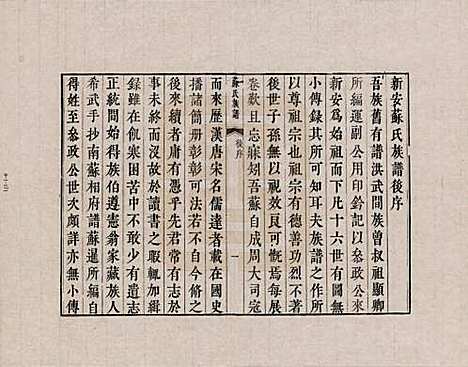 新安蘇氏族譜後序
吾族舊有譜洪武間族曾叔祖顯卿
所編運副公用印鈐記以參政公來
新安爲始祖而下凡十六世有圖有
小傳錄其可見者耳夫族譜之作所
以尊祖宗也祖宗有德善功烈不著
後世子孫無以視效良可慨焉每展
卷歎且忘寐矧吾蘇自成周大司寇
蘇氏族譜
後序
一
而來歷漢唐宋名儒達者載在國史
播諸簡册彰彰可法若不自今脩之
後來續者庸有愚乎先君常有志於
事未終而歿不肖讀書之暇輒加緝
錄雖在飢寒困苦中不敢少有遺志
正統間始得族伯遵憲翁家藏族人
希武手抄南蘇相府譜蘇暹所編自
得姓至參政公世次頗詳亦無小傳